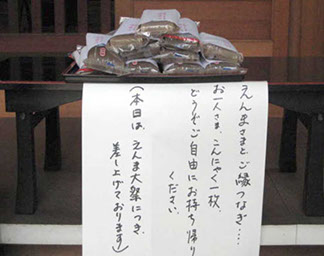 えんまさまとご縁つなぎ…
お一人さま、こんにゃく一枚、
どうぞご自由にお持ち帰り
ください。
（本日は、えんま大祭につき、
差し上げております）